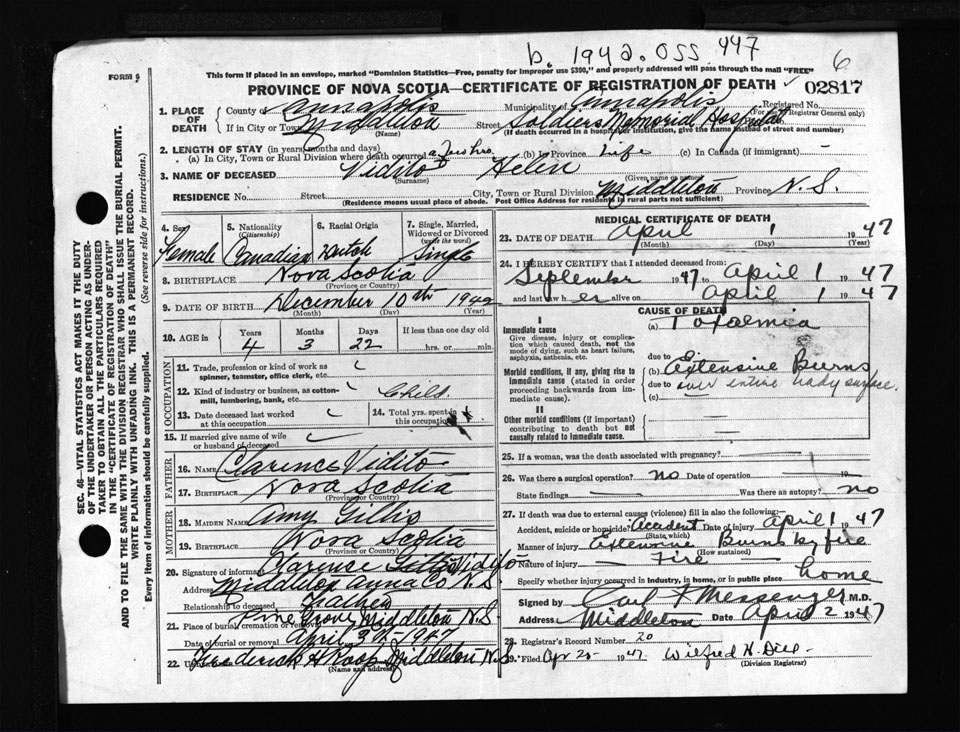 b. 1942. OSS. 447
6
FORM 6
This form if placed in an envelope, marked "Dominion Statistics—Free, penalty for improper use $300," and properly addressed will pass through the mail "FREE"
PROVINCE OF NOVA SCOTIA—CERTIFICATE OF REGISTRATION OF DEATH
02817
1. PLACE OF DEATH
County of Annapolis Municipality of Annapolis Registered No.
(For use of Registrar General only)
If in City or Town Middleton Street Soldiers Memorial Hospital
(Name) (If death occurred in a hospital or institution, give the name instead of street and number)
2. LENGTH OF STAY (in years, months and days)
(a) In City, Town or Rural Division where death occurred a few hrs. (b) In Province Life (c) In Canada (if immigrant) -
3. NAME OF DECEASED Vidito Helen
(Surname) (Given name or names)
RESIDENCE No. Street City, Town or Rural Division Middleton Province N.S.
(Residence means usual place of abode. Post Office Address for residents in rural parts not sufficient)
4. Sex Female
5. Nationality (Citizenship) Canadian
6. Racial Origin Dutch
7. Single, Married, Widowed or Divorced (write the word) Single
8. BIRTHPLACE Nova Scotia
(Province or Country)
9. DATE OF BIRTH December 10th 1942
(Month) (Day) (Year)
10. AGE in Years Months Days If less than one day old
4 3 22 hrs. or min.
OCCUPATION
11. Trade, profession or kind of work as spinner, teamster, office clerk, etc.
12. Kind of industry or business, as cotton-mill, lumbering, bank, etc. Child.
13. Date deceased last worked at this occupation
14. Total yrs. spent in this occupation
15. If married give name of wife or husband of deceased
FATHER
16. NAME Clarence Vidito
17. BIRTHPLACE Nova Scotia
(Province or Country)
MOTHER
18. MAIDEN NAME Amy Gillis
19. BIRTHPLACE Nova Scotia
(Province or Country)
20. Signature of informant Clarence Vidito
Address Middleton Anna Co N.S.
Relationship to deceased Father
21. Place of burial, cremation or removal Pine Grove Middleton N.S.
Date of burial or removal April 3rd 1947
22. Frederick H Roop Middleton N.S.
(Name and address)
MEDICAL CERTIFICATE OF DEATH
23. DATE OF DEATH April 1 1947
(Month) (Day) (Year)
24. I HEREBY CERTIFY that I attended deceased from:
September 1947 to April 1 1947
and last saw her alive on April 1 1947
CAUSE OF DEATH
I
Immediate cause (a) Toxaemia
Give disease, injury or complication which caused death, not the mode of dying, such as heart failure, asphyxia, asthenia, etc.
due to
Morbid conditions, if any, giving rise to immediate cause (stated in order proceeding backwards from immediate cause). (b) Extensive Burns
due to over entire body surface.
(c) —
II
Other morbid conditions (if important) contributing to death but not causally related to immediate cause.
25. If a woman, was the death associated with pregnancy? —
26. Was there a surgical operation? no Date of operation — 19
State findings — Was there an autopsy? no
27. If death was due to external causes (violence) fill in also the following:
Accident, suicide or homicide? Accident Date of injury April 1 1947
(State which)
Manner of injury Extensive Burns by fire
(How sustained)
Nature of injury — Fire
Specify whether injury occurred in industry, in home, or in public place home
Signed by Carl F Messenger M.D.
Address Middleton Date April 2 1947
28. Registrar's Record Number 20
29. Filed Apr 20 1947 Wilfred H. Dill
(Division Registrar)
SEC. 46—VITAL STATISTICS ACT MAKES IT THE DUTY
OF THE UNDERTAKER OR PERSON ACTING AS UNDER-
TAKER TO OBTAIN ALL THE PARTICULARS REQUIRED
IN THE "CERTIFICATE OF REGISTRATION OF DEATH"
AND TO FILE THE SAME WITH THE DIVISION REGISTRAR WHO SHALL ISSUE THE BURIAL PERMIT.
WRITE PLAINLY WITH UNFADING INK. THIS IS A PERMANENT RECORD.
Every item of information should be carefully supplied. (See reverse side for instructions.)